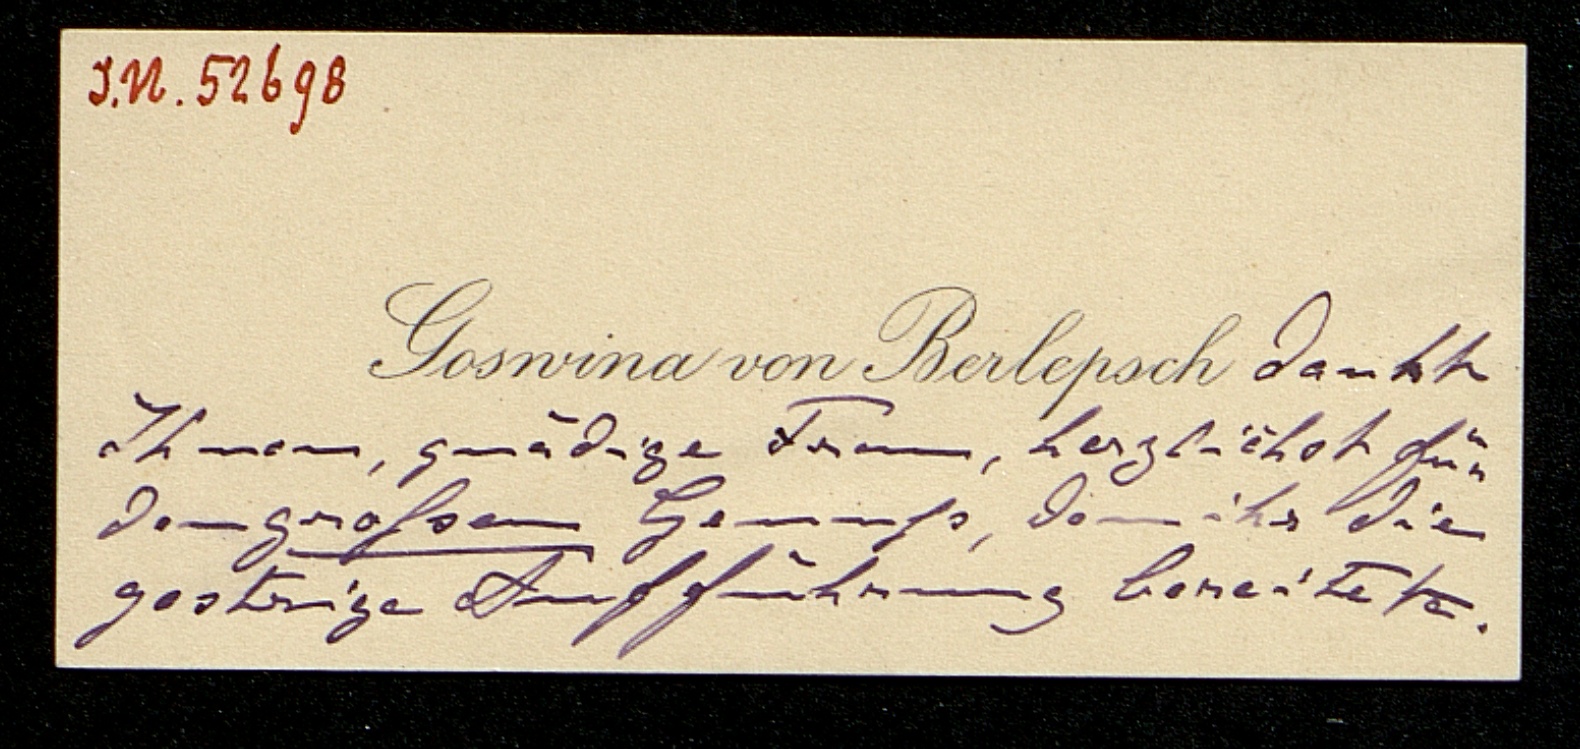 J.N. 52698
Goswina von Berlepsch dankt
Ihnen, gnädige Frau, herzlichst für
den grossen Genuss, den ihr die
gestrige Aufführung bereitete.